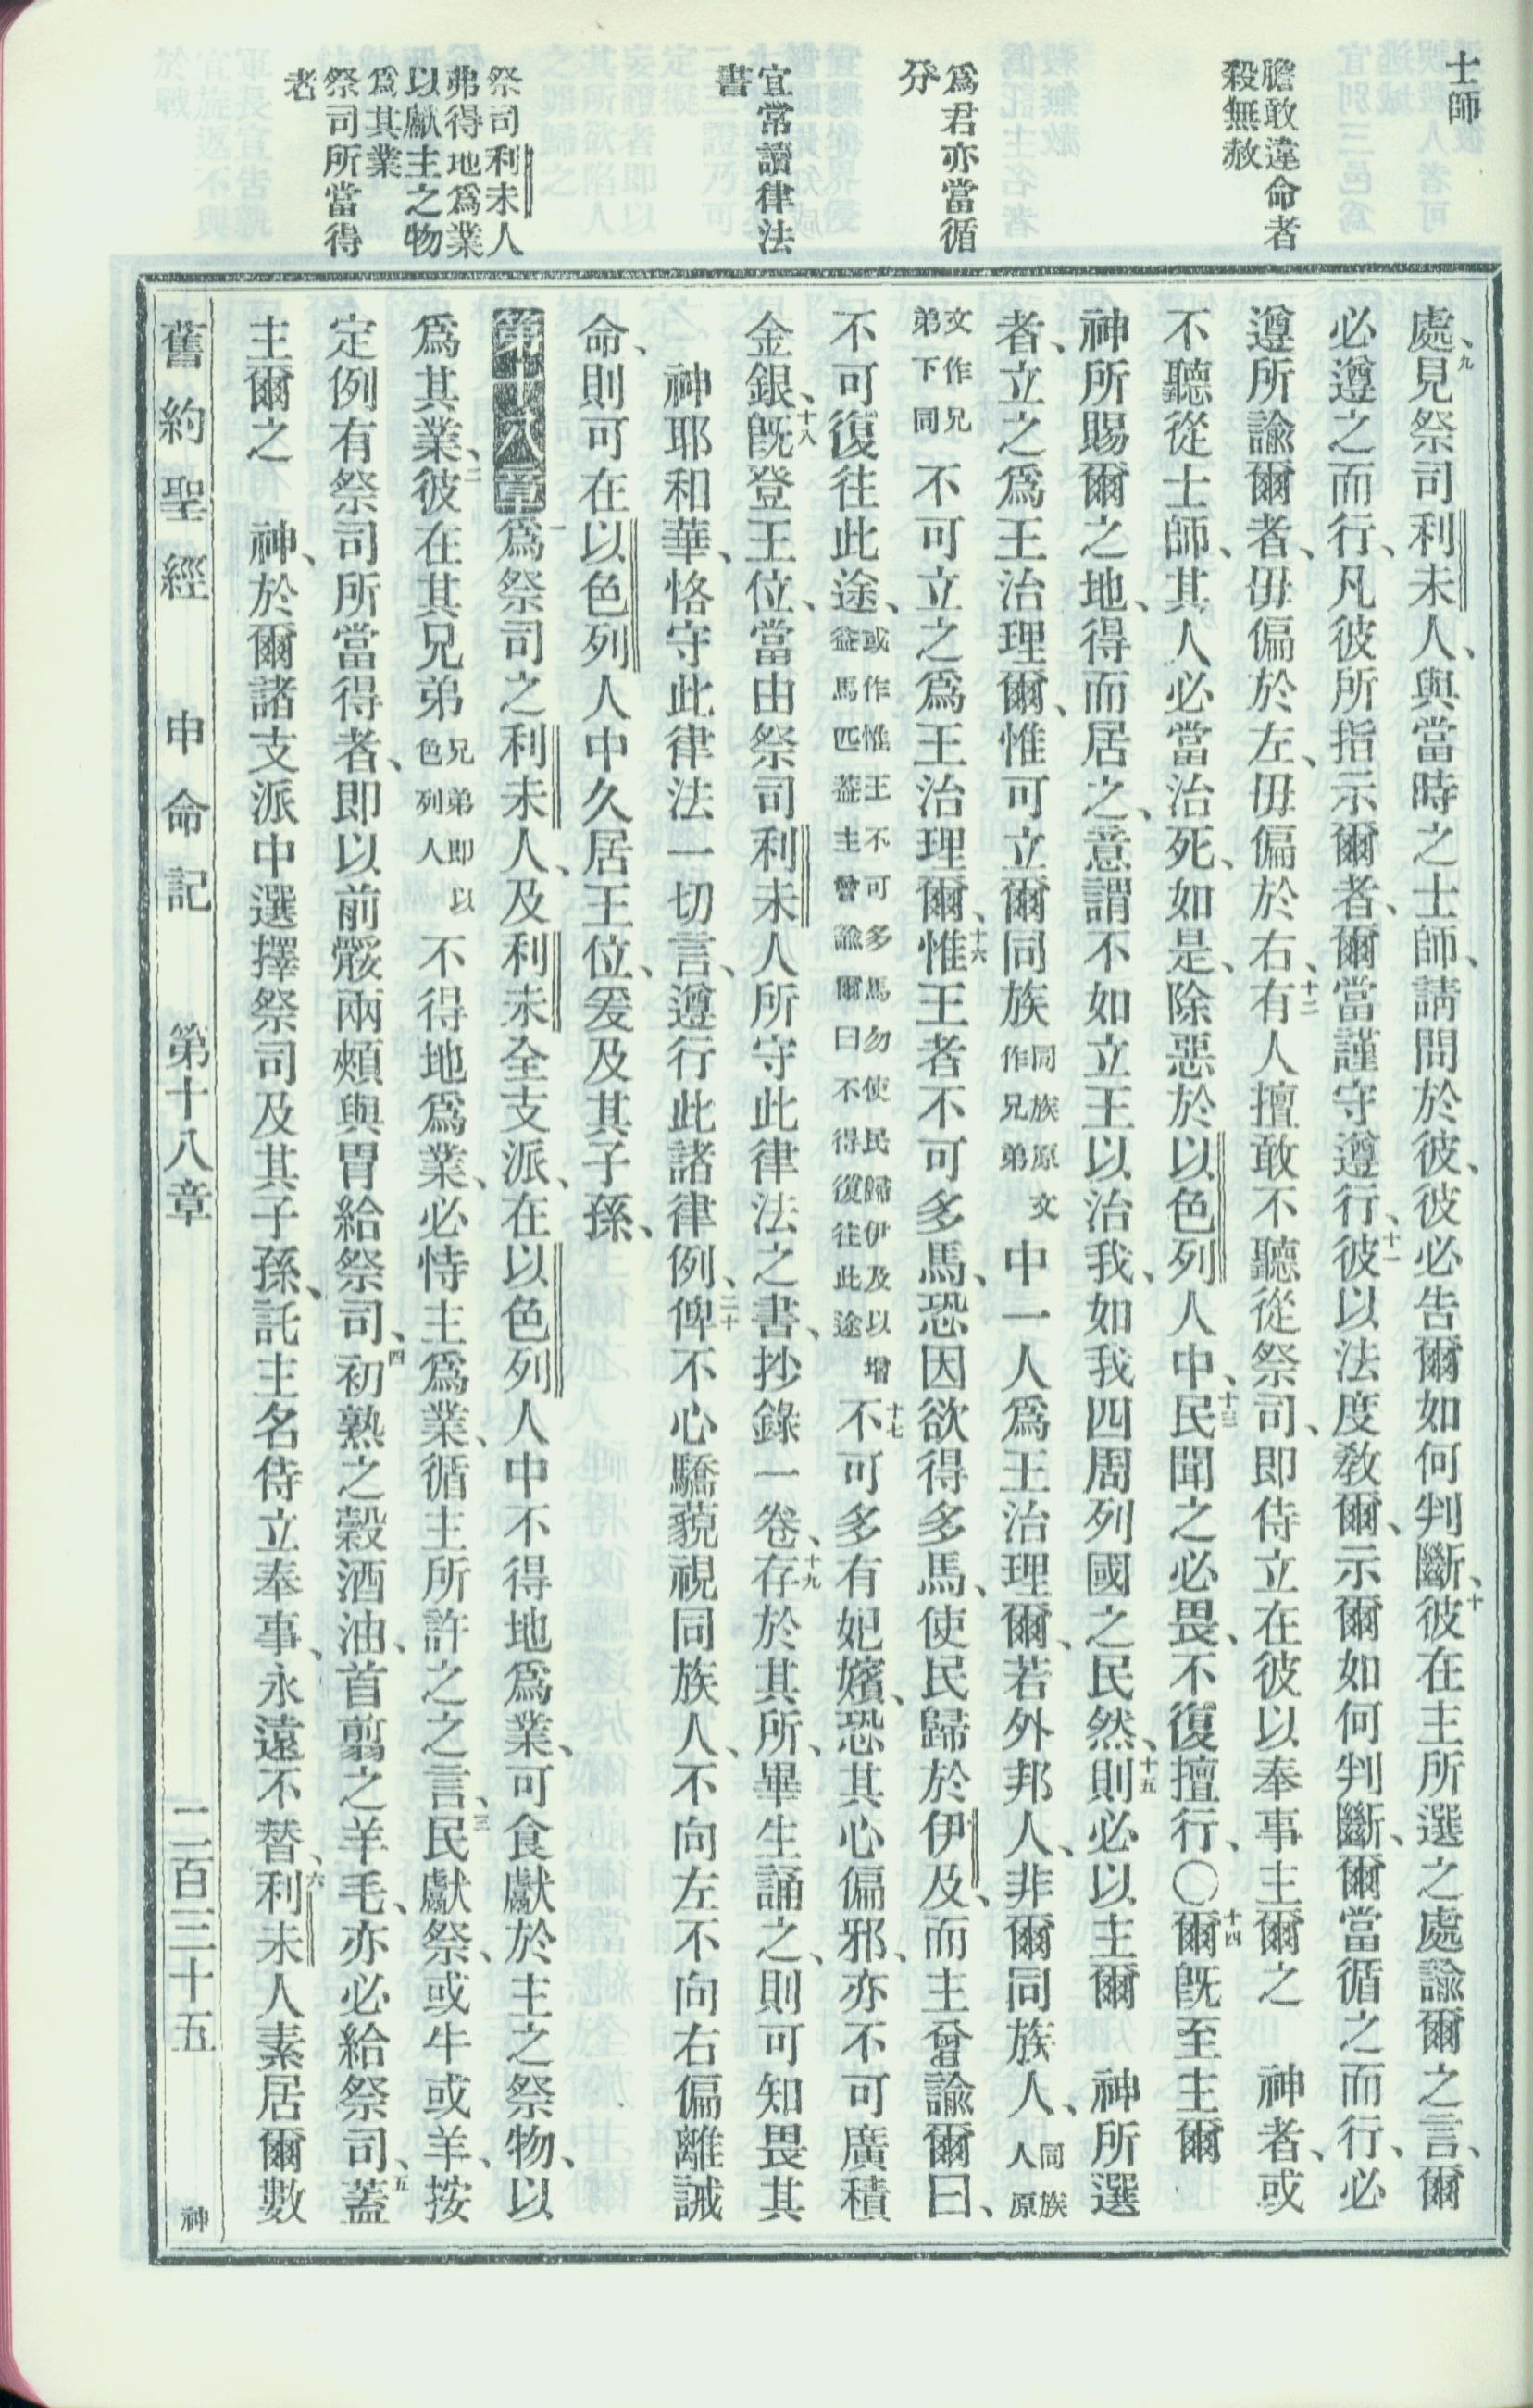 士師
膽敢違命者
殺無赦
爲君亦當循
分
宜常讀律法
書
祭司利未人
弗得地爲業
以獻主之物
爲其業
祭司所當得
者
處、九見祭司利未人、與當時之士師、請問於彼、彼必告爾如何判斷、十彼在主所選之處諭爾之言、爾
必遵之而行、凡彼所指示爾者、爾當謹守遵行、十一彼以法度教爾、示爾如何判斷、爾當循之而行、必
遵所諭爾者、毋偏於左、毋偏於右、十二有人擅敢不聽從祭司、即侍立在彼以奉事主爾之　神者、或
不聽從士師、其人必當治死、如是、除惡於以色列人中、十三民聞之必畏、不復擅行、〇十四爾既至主爾
神所賜爾之地、得而居之、意謂不如立王以治我、如我四周列國之民然、十五則必以主爾　神所選
者、立之爲王治理爾、惟可立爾同族同族原文作兄弟中一人爲王治理爾、若外邦人、非爾同族人、同族人原
文作兄弟下同不可立之爲王治理爾、十六惟王者不可多馬、恐因欲得多馬、使民歸於伊及、而主曾諭爾曰、
不可復往此途、或作惟王不可多馬勿使民歸伊及以增益馬匹蓋主曾諭爾曰不得復往此途十七不可多有妃嬪、恐其心偏邪、亦不可廣積
金銀、十八既登王位、當由祭司利未人所守此律法之書、抄錄一卷、十九存於其所、畢生誦之、則可知畏其
神耶和華、恪守此律法一切言、遵行此諸律例、二十俾不心驕藐視同族人、不向左不向右偏離誡
命、則可在以色列人中久居王位、爰及其子孫、
第十八章一爲祭司之利未人、及利未全支派、在以色列人中不得地爲業、可食獻於主之祭物、以
爲其業、二彼在其兄弟兄弟即以色列人不得地爲業、必恃主爲業、循主所許之之言、三民獻祭、或牛或羊、按
定例有祭司所當得者、即以前骽兩頰與胃給祭司、四初熟之穀酒油、首翦之羊毛、亦必給祭司、五蓋
主爾之　神、於爾諸支派中選擇祭司及其子孫、託主名侍立奉事、永遠不替、六利未人素居爾數
舊約聖經　申命記　第十八章　二百三十五　神